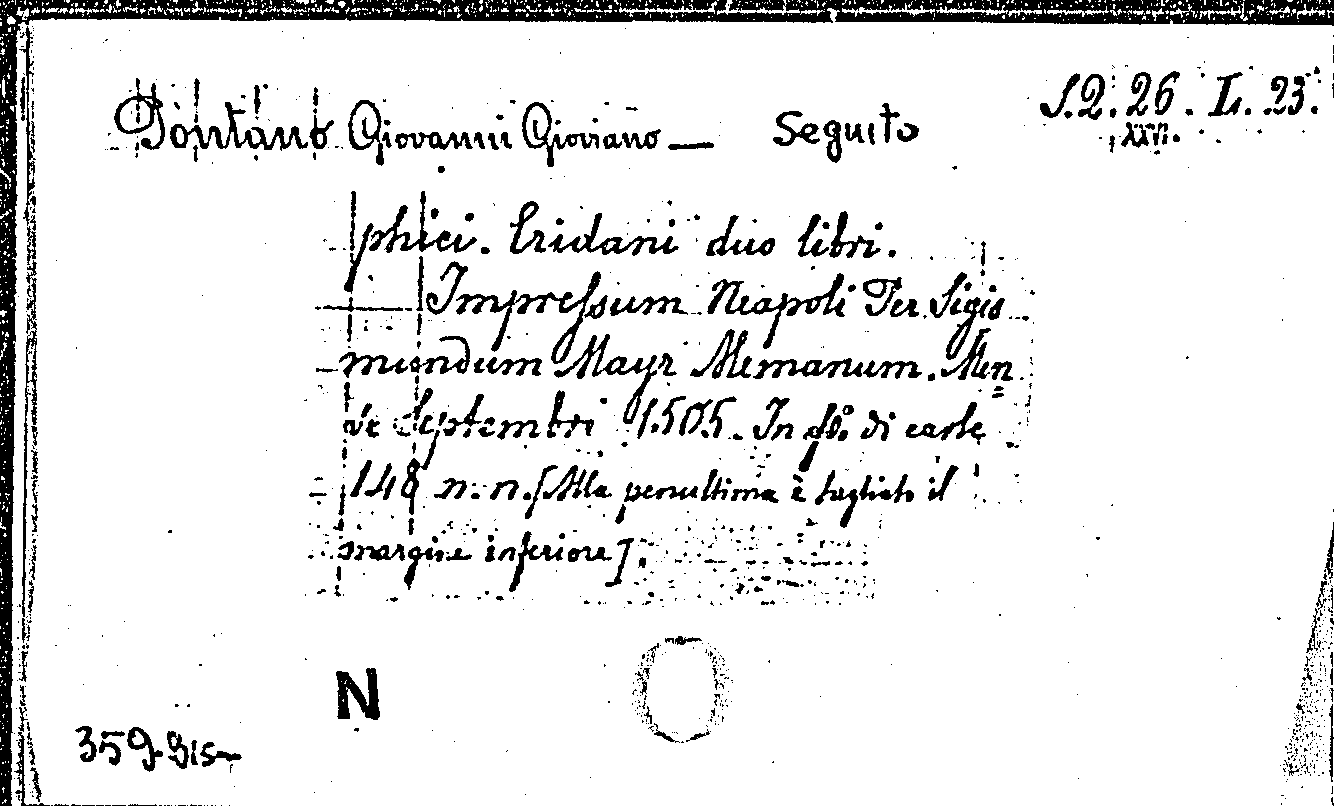 Pontano Giovanni Gioviano — Seguito
S.Q. 26. L. 23.
XXVI.
phici. Eridani duo libri.
Impressum Neapoli Per Sigis
mundum Mayr Alemanum. Men=
se Septembri 1505. In fo. di carte
148 n. n. [Alla penultima è tagliato il
margine inferiore].
N
359 Bis